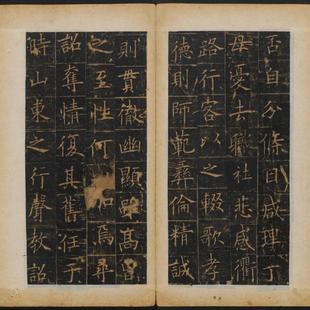 否自分條自咸㻫丁
母憂去職社悲感衢
路行客以之輟歌孝
德則師範彝倫精誠
則貫徹幽顯雖高
之至性何 焉尋
詔奪情復其舊任于
時山東之行聲教詔